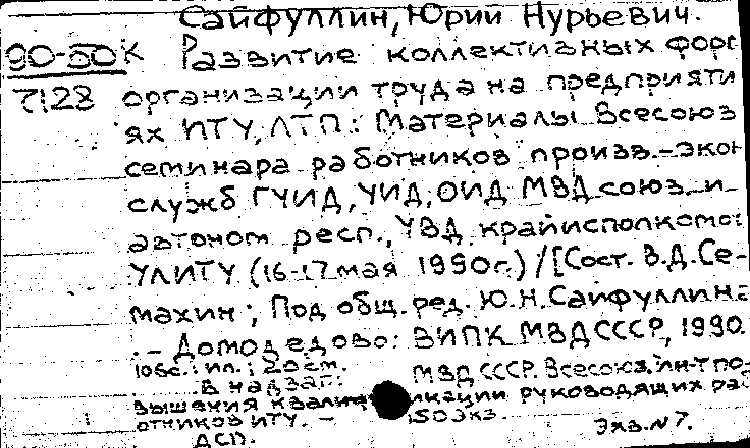 Сайфуллин, Юрий Нурьевич.
90-50К Развитие коллективных форм
7128 организации труда на предприяти
ях ИТУ, ЛТП: Материалы Всесоюз
семинара работников произв.-экон
служб ГУИД, УИД, ОИД МВД союз. и
автоном респ., УВД крайисполкомов
УЛИТУ (16-17 мая 1990г.) / [Сост. В.Д. Се-
махин; Под общ. ред. Ю.Н. Сайфуллина
. – Домодедово: ВИПК МВД СССР, 1990.
106с.: ил.; 20см.
В надзаг: МВД СССР. Всесоюз. ин-т по
вышения квалификации руководящих раб
отников ИТУ. – 150 экз.
ДСП. Экз. N 7.